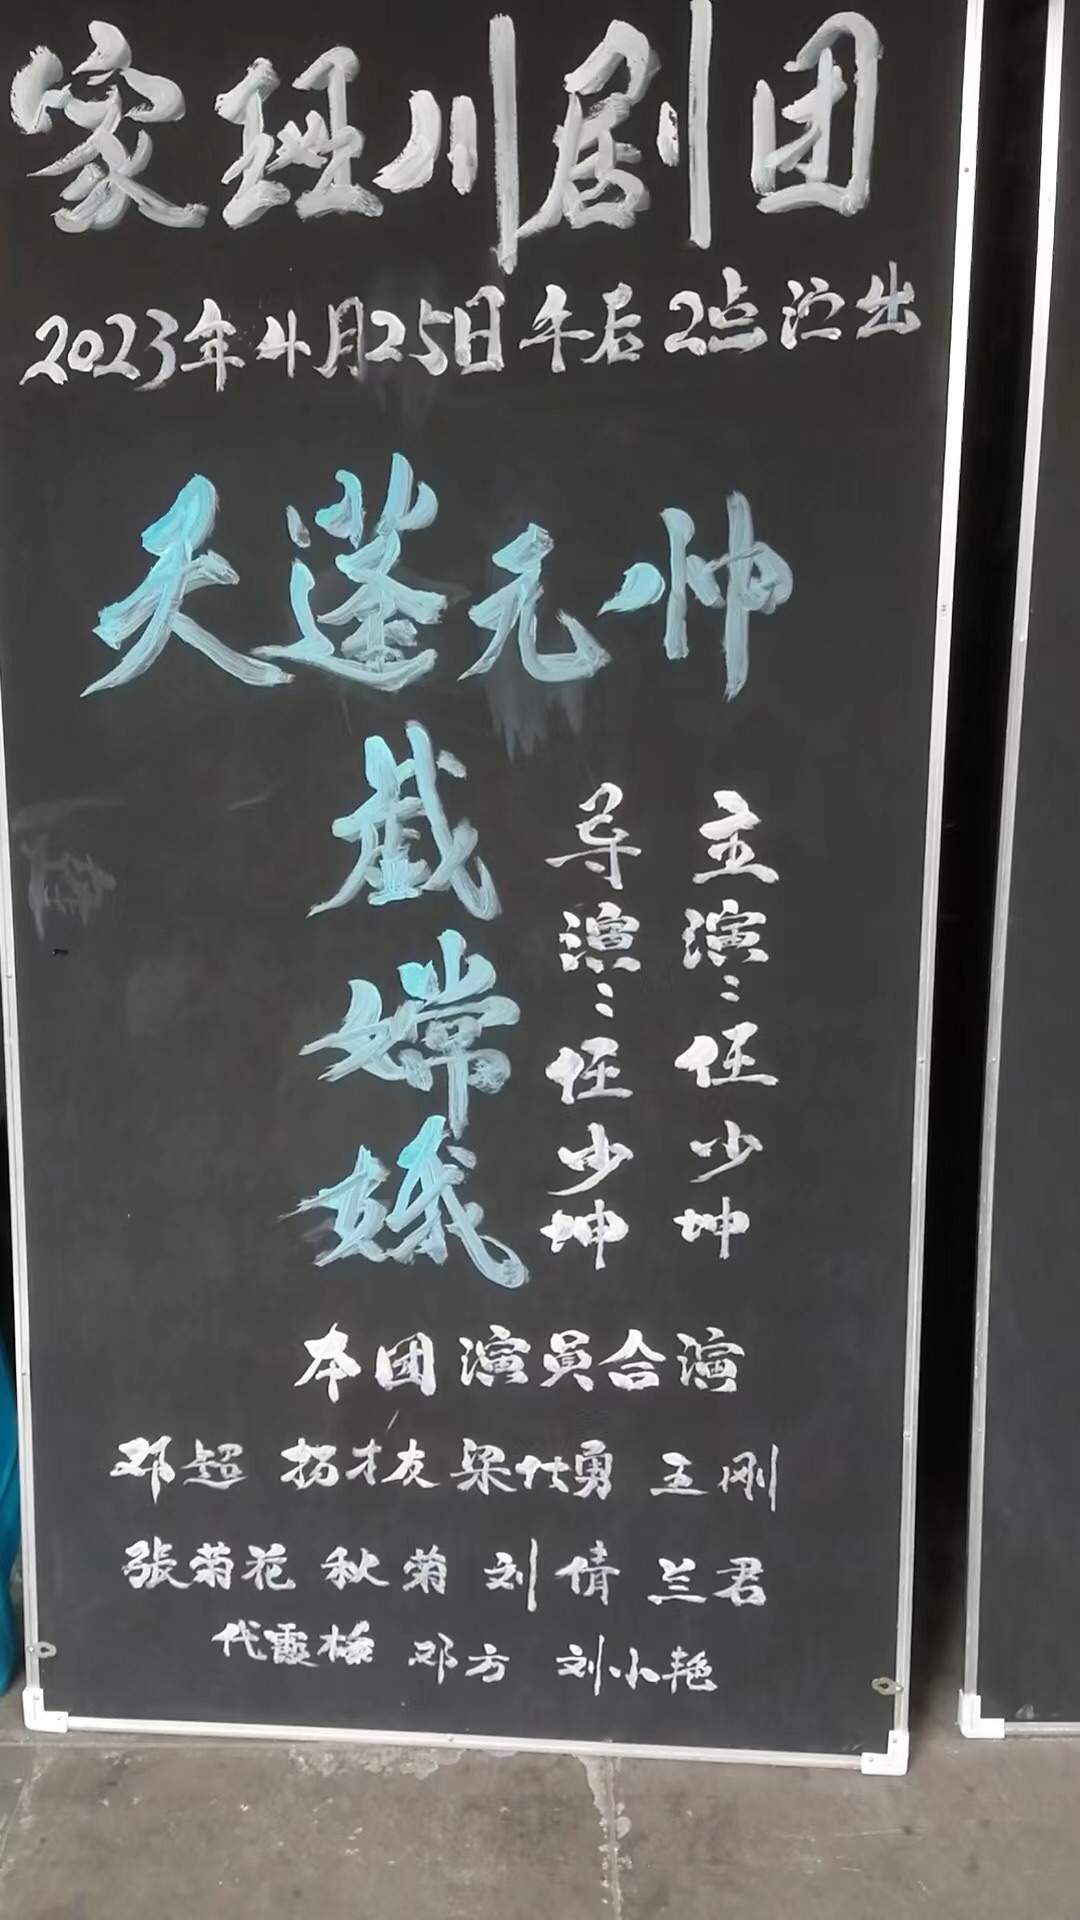 家班川剧团
2023年4月25日午后2点演出
天蓬元帅
戱嫦娥
导演:任少坤
主演:任少坤
本团演员合演
邓超 杨才友 梁仕勇 王刚
張菊花 秋菊 刘倩 兰君
代霞 邓方 刘小艳